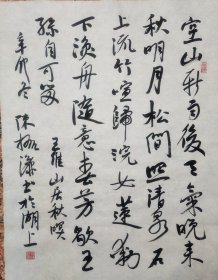 空山新雨後天氣晚来
秋明月松間照清泉石
上流竹喧歸浣女蓮動
下漁舟隨意春芳歇王
孫自可留
王維山居秋暝
辛卯冬陳振濂書於湖上